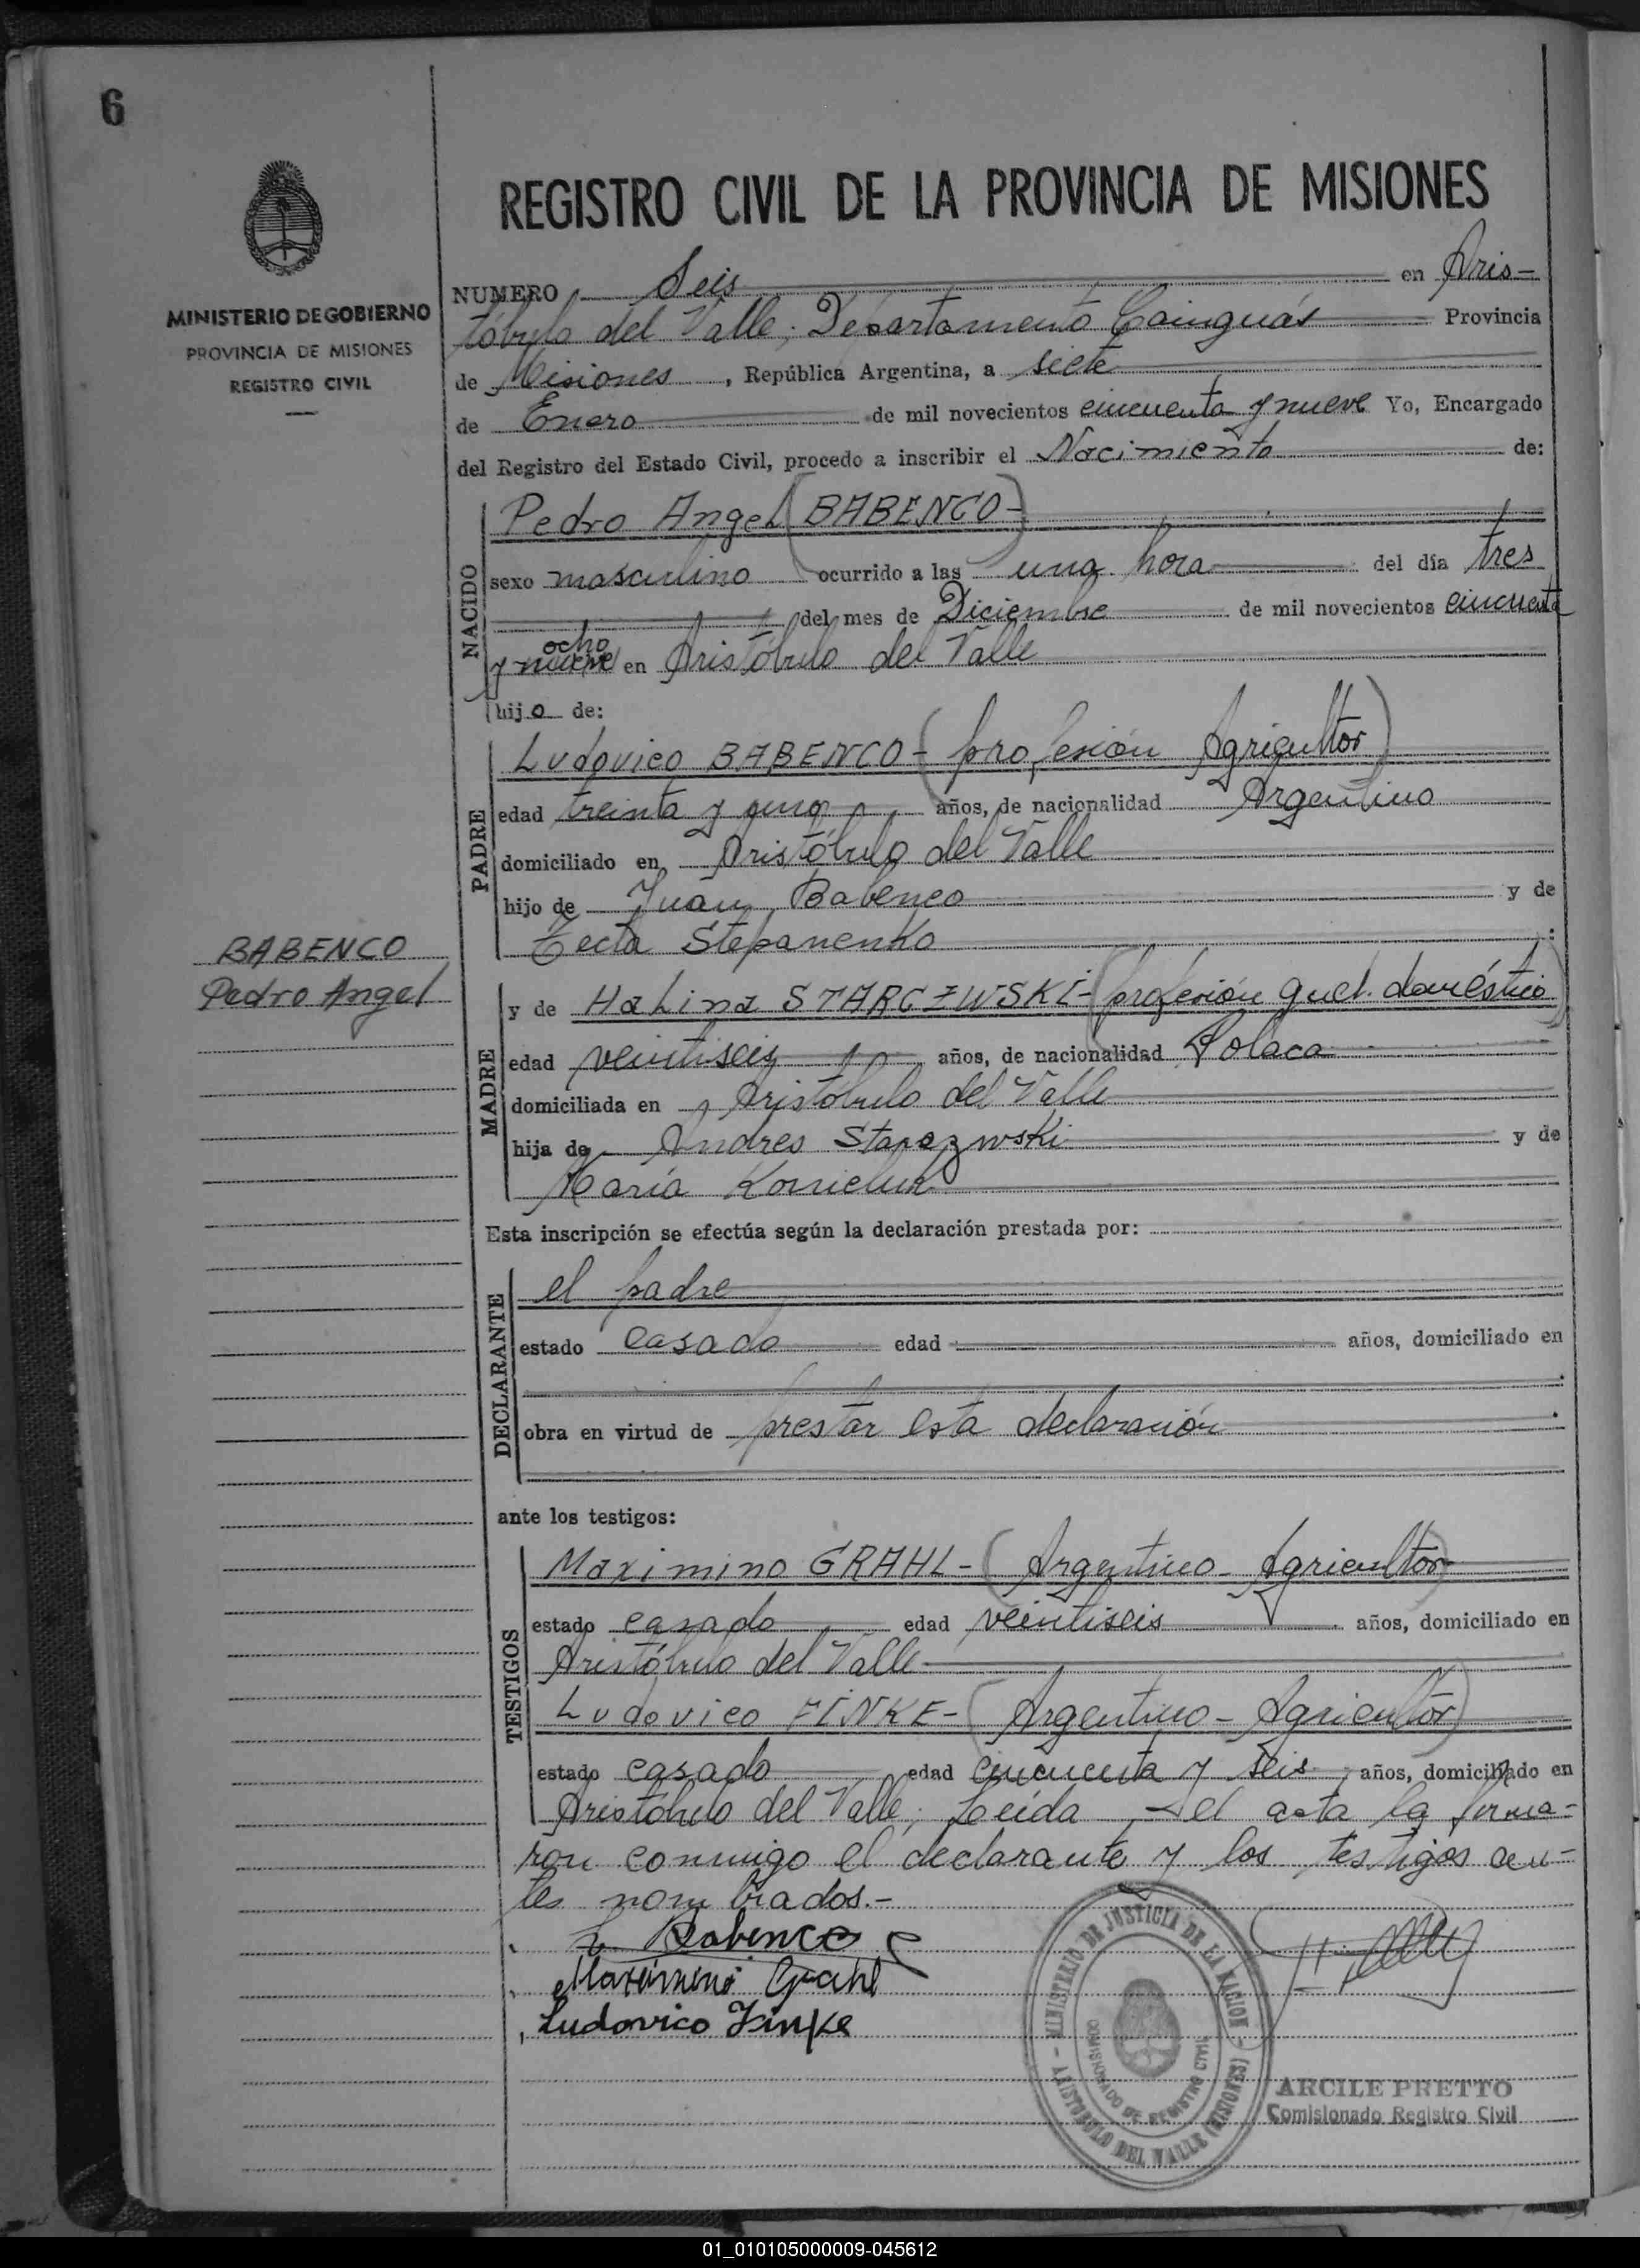 6
MINISTERIO DE GOBIERNO
PROVINCIA DE MISIONES
REGISTRO CIVIL
BABENCO
Pedro Angel
REGISTRO CIVIL DE LA PROVINCIA DE MISIONES
NUMERO Seis en Aris-
tóbulo del Valle; Departamento Cainguás Provincia
de Misiones, República Argentina, a siete
de Enero de mil novecientos cincuenta y nueve Yo, Encargado
del Registro del Estado Civil, procedo a inscribir el Nacimiento de:
NACIDO
Pedro Angel (BABENCO-)
sexo masculino ocurrido a las una hora del día tres
del mes de Diciembre de mil novecientos cincuenta
ocho
y nueve en Aristóbulo del Valle
hijo de:
PADRE
Ludovico BABENCO- (profesión Agricultor)
edad treinta y uno años, de nacionalidad Argentino
domiciliado en Aristóbulo del Valle
hijo de Juan Babenco y de
Tecla Stepanenko :
MADRE
y de Halina STARCZWSKI- (profesión quel. doméstico)
edad veintiseis años, de nacionalidad Polaca
domiciliada en Aristóbulo del Valle
hija de Andres Starczwski y de
María Korneluk
Esta inscripción se efectúa según la declaración prestada por:
DECLARANTE
el padre
estado casado edad años, domiciliado en
obra en virtud de prestar esta declaración
ante los testigos:
TESTIGOS
Maximino GRAHL- (Argentino - Agricultor)
estado casado edad veintiseis años, domiciliado en
Aristóbulo del Valle
Ludovico FINKE- (Argentino - Agricultor)
estado casado edad cincuenta y seis años, domiciliado en
Aristóbulo del Valle; Leída el acta la firma-
ron conmigo el declarante y los testigos an-
tes nombrados.-
L. Babenco
Maximino Grahl
Ludovico Finke
MINISTERIO DE JUSTICIA DE LA NACION
COMISIONADO DE REGISTRO CIVIL
ARISTOBULO DEL VALLE (MISIONES)
ARCILE PRETTO
Comisionado Registro Civil
01_010105000009-045612